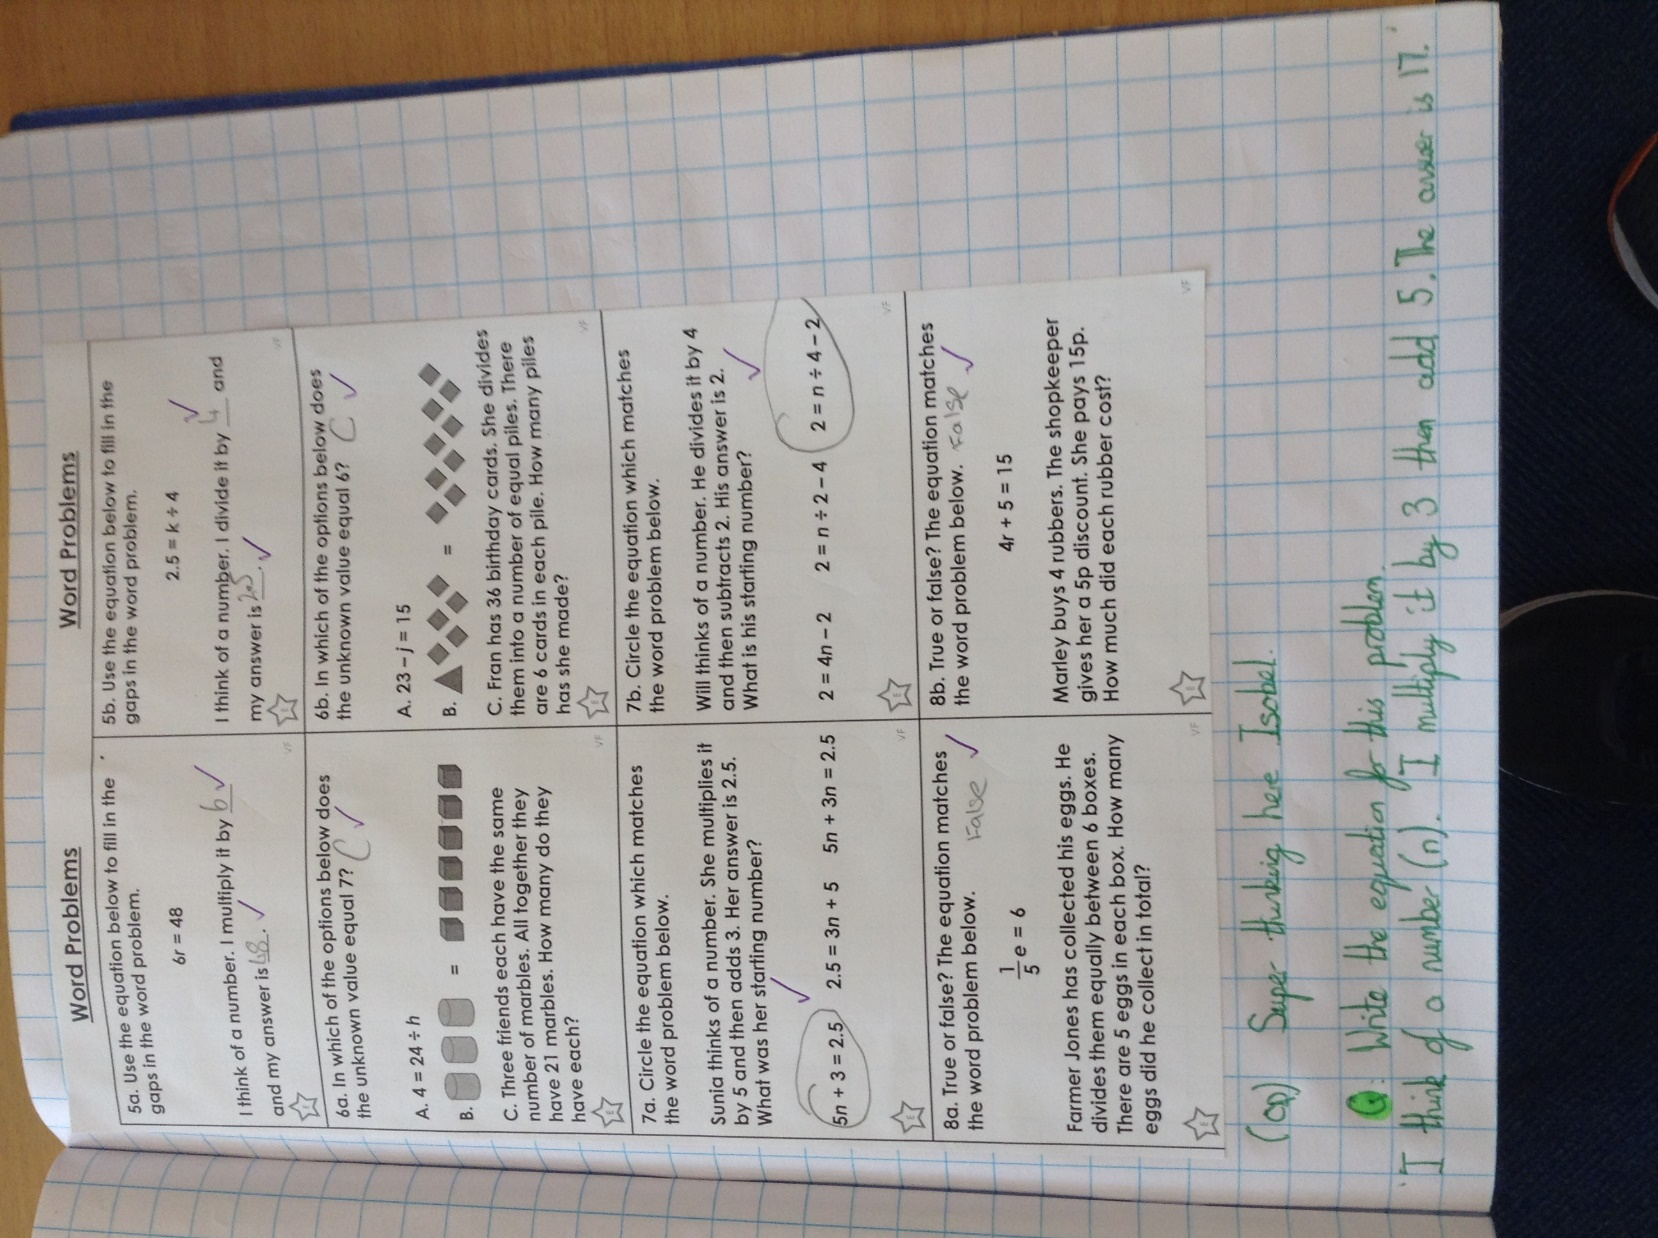 Word Problems
5a. Use the equation below to fill in the
gaps in the word problem.
6r = 48
I think of a number. I multiply it by 6
and my answer is 48.
VF
6a. In which of the options below does
the unknown value equal 7? C
A. 4 = 24 ÷ h
B. =
C. Three friends each have the same
number of marbles. All together they
have 21 marbles. How many do they
have each?
VF
7a. Circle the equation which matches
the word problem below.
Sunia thinks of a number. She multiplies it
by 5 and then adds 3. Her answer is 2.5.
What was her starting number?
5n + 3 = 2.5 2.5 = 3n + 5 5n + 3n = 2.5
VF
8a. True or false? The equation matches
the word problem below. False
1/5 e = 6
Farmer Jones has collected his eggs. He
divides them equally between 6 boxes.
There are 5 eggs in each box. How many
eggs did he collect in total?
VF
Word Problems
5b. Use the equation below to fill in the
gaps in the word problem.
2.5 = k ÷ 4
I think of a number. I divide it by 4 and
my answer is 2.5.
VF
6b. In which of the options below does
the unknown value equal 6? C
A. 23 – j = 15
B. =
C. Fran has 36 birthday cards. She divides
them into a number of equal piles. There
are 6 cards in each pile. How many piles
has she made?
VF
7b. Circle the equation which matches
the word problem below.
Will thinks of a number. He divides it by 4
and then subtracts 2. His answer is 2.
What is his starting number?
2 = 4n – 2 2 = n ÷ 2 – 4 2 = n ÷ 4 – 2
VF
8b. True or false? The equation matches
the word problem below. False
4r + 5 = 15
Marley buys 4 rubbers. The shopkeeper
gives her a 5p discount. She pays 15p.
How much did each rubber cost?
VF
Super thinking here Isobel.
Q: Write the equation for this problem.
'I think of a number (n). I multiply it by 3 then add 5. The answer is 17.'